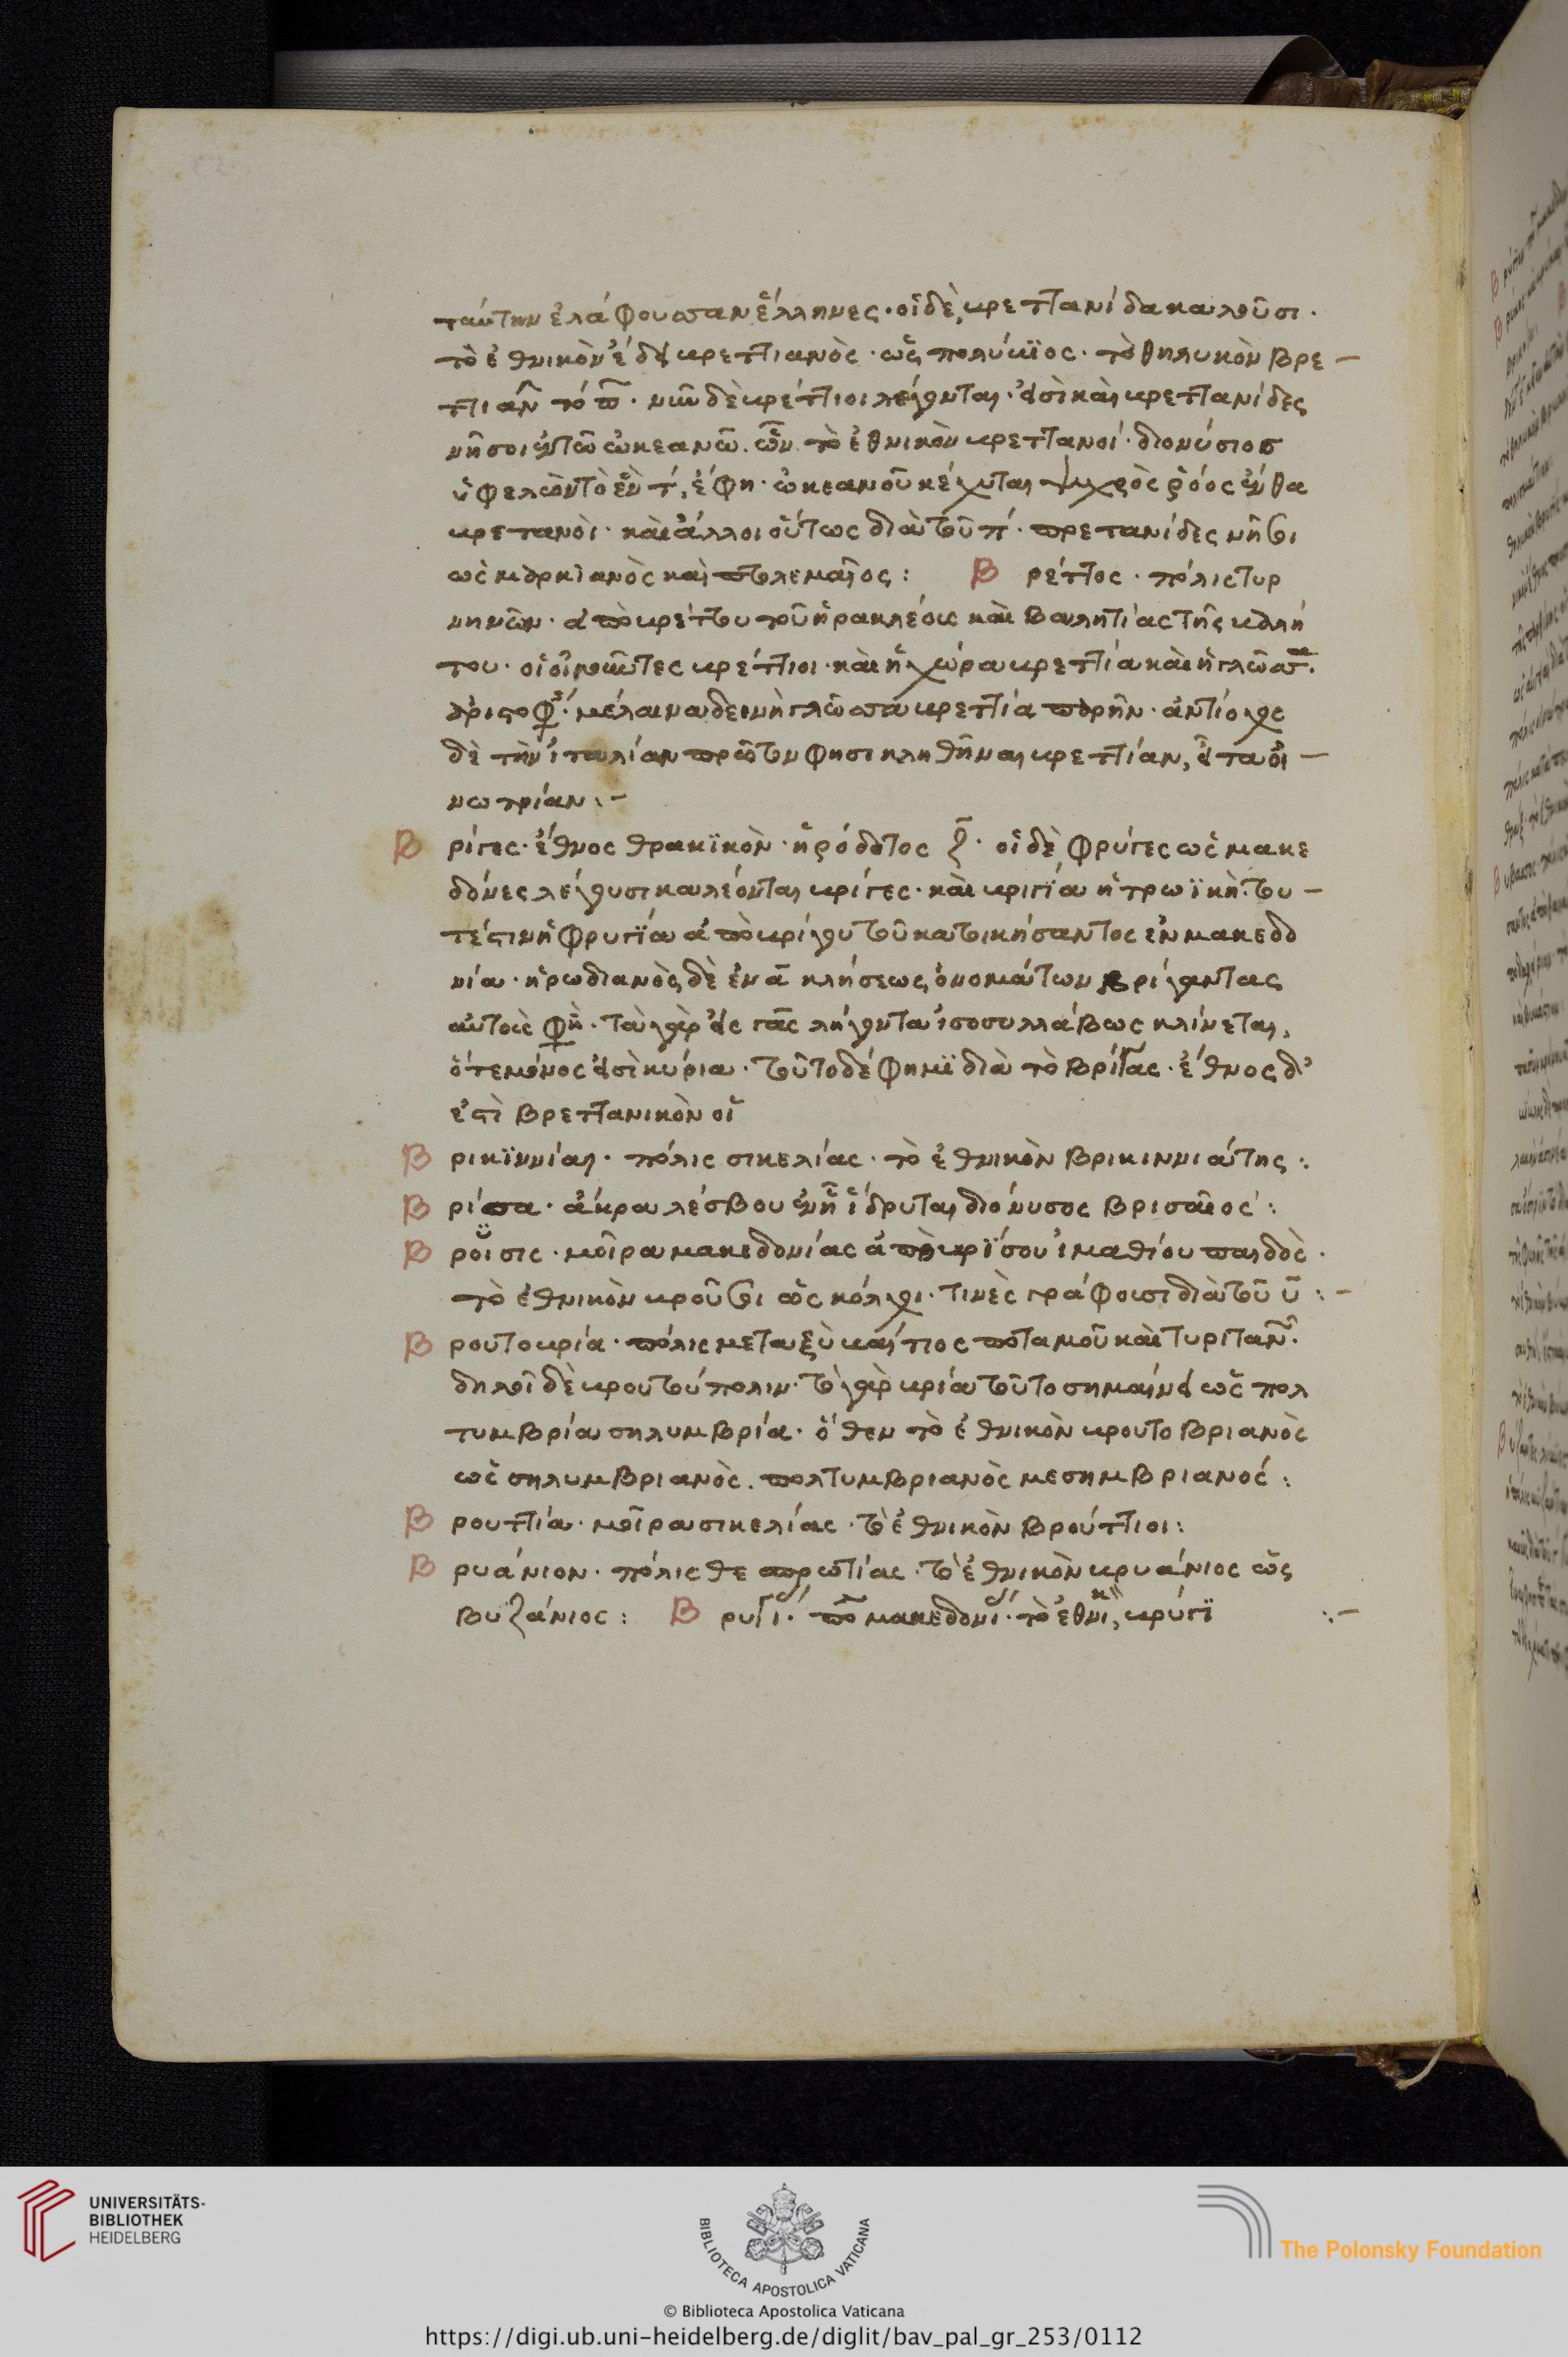 ταύτην ἐλάφουσσαν ἕλληνες· οἱ δὲ, βρεττανίδα καλοῦσι·
τὸ ἐθνικὸν ἔδει βρεττιανὸς· ὡς πολύβϊος· τὸ θηλυκὸν βρε –
ττιανὴ τόπ· νῦν δὲ βρέττιοι λέγονται· εἰσὶ καὶ βρεττανίδες
νῆσοι ἐν τῶ ὠκεανῶ. ὧν τὸ ἐθνικὸν βρεττανοί· διονύσιος
ὑφελὼν τὸ ἓν τ, ἔφη· ὠκεανοῦ κέχυται ψυχρὸς ῥόος ἔνθα
βρετανοὶ· καὶ ἄλλοι οὕτως διὰ τοῦ π· πρετανίδες νῆσοι
ὡς μαρκιανὸς καὶ πτολεμαῖος : Βρέττος· πόλις τυρ
ρηνῶν· ἀπὸ βρέττου τοῦ ἡρακλέους καὶ βαλητίας τῆς βαλή
του· οἱ οἰκοῦντες βρέττιοι· καὶ ἡ χώρα βρεττία καὶ ἡ γλῶσσα.
ἀριστοφ· μέλαινα δεινὴ γλῶσσα βρεττία παρῆν· ἀντίοχος
δὲ τὴν ἰταλίαν πρῶτον φησι κληθῆναι βρεττίαν, εἶτα οἰ –
νωτρίαν :–
Βρίγες· ἔθνος θρακϊκὸν· ἡρόδοτος ζ· οἱ δὲ φρύγες ὡς μακε
δόνες λέγουσι καλέονται βρίγες· καὶ βριγία ἡ τρωϊκὴ· του –
τέστιν ἡ φρυγία ἀπὸ βρίγου τοῦ κατοικήσαντος ἐν μακεδο
νία· ἡρωδιανὸς δὲ ἐν α κλήσεως ὀνομάτων βρίγαντας
αὐτούς φη· τὰ γὰρ εἰς γας λήγοντα ἰσοσυλλάβως κλίνεται,
ὅτε μόνος εἰσὶ κύρια· τοῦτο δέ φημϊ διὰ τὸ βρίγας· ἔθνος δ'
ἐστὶ βρεττανικὸν οἱ
Βρικϊννίαι· πόλις σικελίας· τὸ ἐθνικὸν βρικιννιάτης :.
Βρίσα· ἄκρα λέσβου ἐν ἧ ἵδρυται διόνυσος βρισαῖος :
Βροῦσις· μοῖρα μακεδονίας ἀπὸ βρϊσου ἰμαθίου παιδὸς·
τὸ ἐθνικὸν βροῦσοι ὡς κόλχοι· τινὲς γράφουσι διὰ τοῦ υ :–
Βρουτοβρία· πόλις μεταξὺ βαίτιος ποταμοῦ καὶ τυριτανῶν·
δηλοῖ δὲ βρουτούπολιν· τὸ γὰρ βρία τοῦτο σημαίνει ὡς πολ
τυμβρία σηλυμβρία· ὅθεν τὸ ἐθνικὸν βρουτοβριανὸς
ὡς σηλυμβριανὸς. πολτυμβριανὸς μεσημβριανός :
Βρουττία· μοῖρα σικελίας· τὸ ἐθνικὸν βρούττιοι :
Βρυάνιον· πόλις θεσπρωτίας· τὸ ἐθνικὸν βρυάνιος ὡς
βυζάνιος : Βρυγι· πο μακεδονι· τὸ ἐθνικ, βρύγϊ :–
UNIVERSITÄTS-
BIBLIOTHEK
HEIDELBERG
BIBLIOTECA APOSTOLICA VATICANA
The Polonsky Foundation
© Biblioteca Apostolica Vaticana
https://digi.ub.uni-heidelberg.de/diglit/bav_pal_gr_253/0112